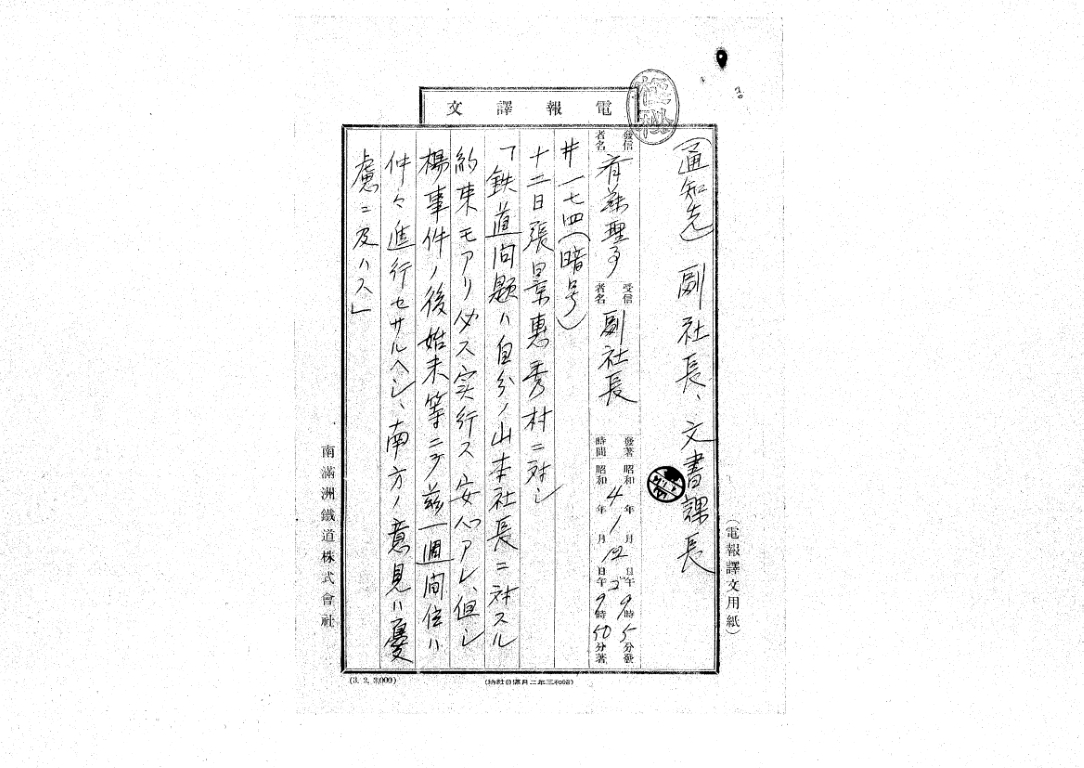 電報譯文
(通知先) 副社長、文書課長
發信者名 斉藤理事
受信者名 副社長
發著時間 昭和4年1月12日午9時5分發
昭和 年 月 日午后9時50分著
#一七四(暗号)
十二日張景惠秀村ニ対シ
「鉄道问題ハ自分ノ山本社長ニ対スル
約束モアリ必ス実行ス安心アレ、但シ
楊事件ノ後始末等ニテ茲一週间位ハ
仲々進行セサルヘシ、南方ノ意見ハ憂
慮ニ及ハス」
(電報譯文用紙)
南滿洲鐵道株式會社
(3. 2. 3,000)